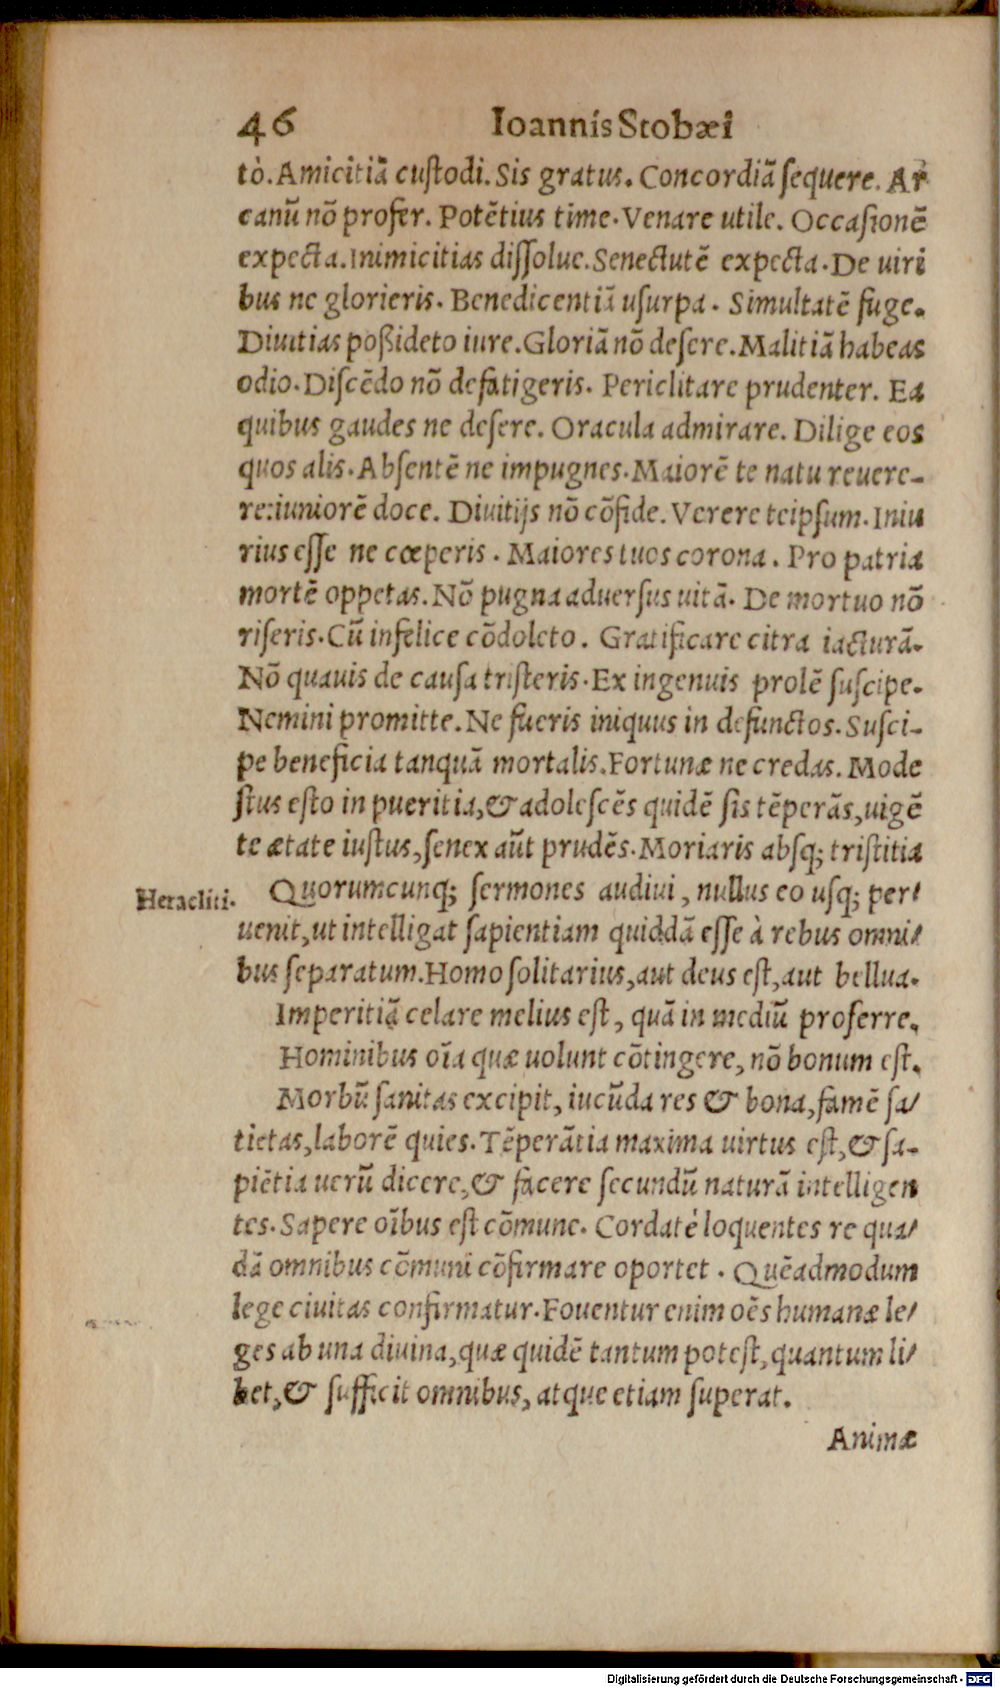 46 Ioannis Stobæi
tò. Amicitiã custodi. Sis gratus. Concordiã sequere. Ar
canũ nõ profer. Potẽtius time. Venare utile. Occasionẽ
expecta. Inimicitias dissolue. Senectutẽ expecta. De uiri
bus ne glorieris. Benedicentiã usurpa. Simultatẽ fuge.
Diuitias poßideto iure. Gloriã nõ desere. Malitiã habeas
odio. Discẽdo nõ defatigeris. Periclitare prudenter. Ea
quibus gaudes ne desere. Oracula admirare. Dilige eos
quos alis. Absentẽ ne impugnes. Maiorẽ te natu reuere-
re: iuniorẽ doce. Diuitijs nõ cõfide. Verere teipsum. Iniu
rius esse ne cœperis. Maiores tuos corona. Pro patria
mortẽ oppetas. Nõ pugna aduersus uitã. De mortuo nõ
riseris. Cũ infelice cõdoleto. Gratificare citra iacturã.
Nõ quauis de causa tristeris. Ex ingenuis prolẽ suscipe.
Nemini promitte. Ne fueris iniquus in defunctos. Susci-
pe beneficia tanquã mortalis. Fortunæ ne credas. Mode
stus esto in pueritia, & adolescẽs quidẽ sis tẽperãs, uigẽ
te ætate iustus, senex aũt prudẽs. Moriaris absq; tristitia
Heracliti. Quorumcunq; sermones audiui, nullus eo usq; per/
uenit, ut intelligat sapientiam quiddã esse à rebus omni/
bus separatum. Homo solitarius, aut deus est, aut bellua.
Imperitiã celare melius est, quã in mediũ proferre.
Hominibus oĩa quæ uolunt cõtingere, nõ bonum est.
Morbũ sanitas excipit, iucũda res & bona, famẽ sa/
tietas, laborẽ quies. Tẽperãtia maxima uirtus est, & sa-
piẽtia uerũ dicere, & facere secundũ naturã intelligen
tes. Sapere oĩbus est cõmune. Cordatè loquentes re qua/
dã omnibus cõmuni cõfirmare oportet. Quẽadmodum
lege ciuitas confirmatur. Fouentur enim oẽs humanæ le/
ges ab una diuina, quæ quidẽ tantum potest, quantum li/
bet, & sufficit omnibus, atque etiam superat.
Animæ
Digitalisierung gefördert durch die Deutsche Forschungsgemeinschaft - DFG